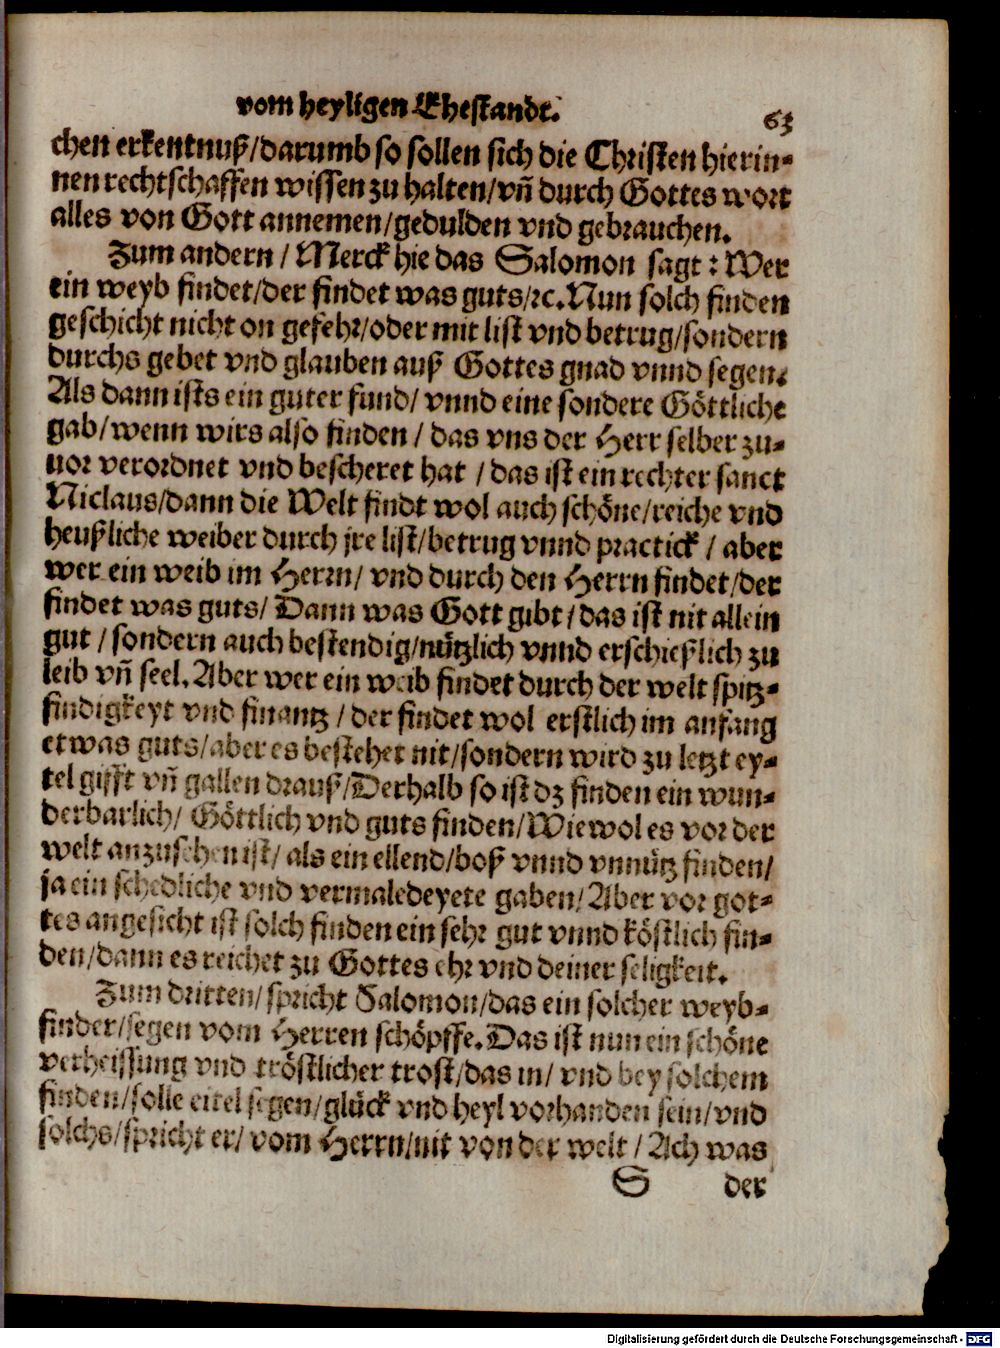 vom heyligen Ehestandt.
63
chen erkentnuß/darumb so sollen sich die Christen hierin-
nen rechtschaffen wissen zu halten/vñ durch Gottes wort
alles von Gott annemen/gedulden vnd gebrauchen.
Zum andern / Merck hie das Salomon sagt: Wer
ein weyb findet/der findet was guts/ꝛc. Nun solch finden
geschicht nicht on gefehr/oder mit list vnd betrug/sondern
durchs gebet vnd glauben auß Gottes gnad vnnd segen.
Als dann ists ein guter fund/ vnnd eine sondere Göttliche
gab/wenn wirs also finden / das vns der Herr selber zu-
uor verordnet vnd bescheret hat / das ist ein rechter sanct
Niclaus/dann die Welt findt wol auch schöne/reiche vnd
heußliche weiber durch jre list/betrug vnnd practick / aber
wer ein weib im Herrn/ vnd durch den Herrn findet/der
findet was guts/ Dann was Gott gibt/das ist nit allein
gut / sondern auch bestendig/nützlich vnnd erschießlich zu
leib vñ seel. Aber wer ein weib findet durch der welt spitz-
findigkeyt vnd finantz / der findet wol erstlich im anfang
etwas guts/aber es bestehet nit/sondern wird zu letzt ey-
tel gifft vñ gallen drauß/Derhalb so ist dz finden ein wun-
derbarlich/ Göttlich vnd guts finden/Wiewol es vor der
welt anzusehen ist/ als ein ellend/boß vnnd vnnütz finden/
ja ein schedliche vnd vermaledeyete gaben/ Aber vor got-
tes angesicht ist solch finden ein sehr gut vnnd köstlich fin-
den/dann es reichet zu Gottes ehr vnd deiner seligkeit.
Zum dritten/ spricht Salomon/das ein solcher weyb-
finder/segen vom Herren schöpffe. Das ist nun ein schöne
verheissung vnd tröstlicher trost/das in/ vnd bey solchem
finden/solle eitel segen/glück vnd heyl vorhanden sein/vnd
solchs/spricht er/ vom Herrn/nit von der welt / Ach was
S der
Digitalisierung gefördert durch die Deutsche Forschungsgemeinschaft - DFG